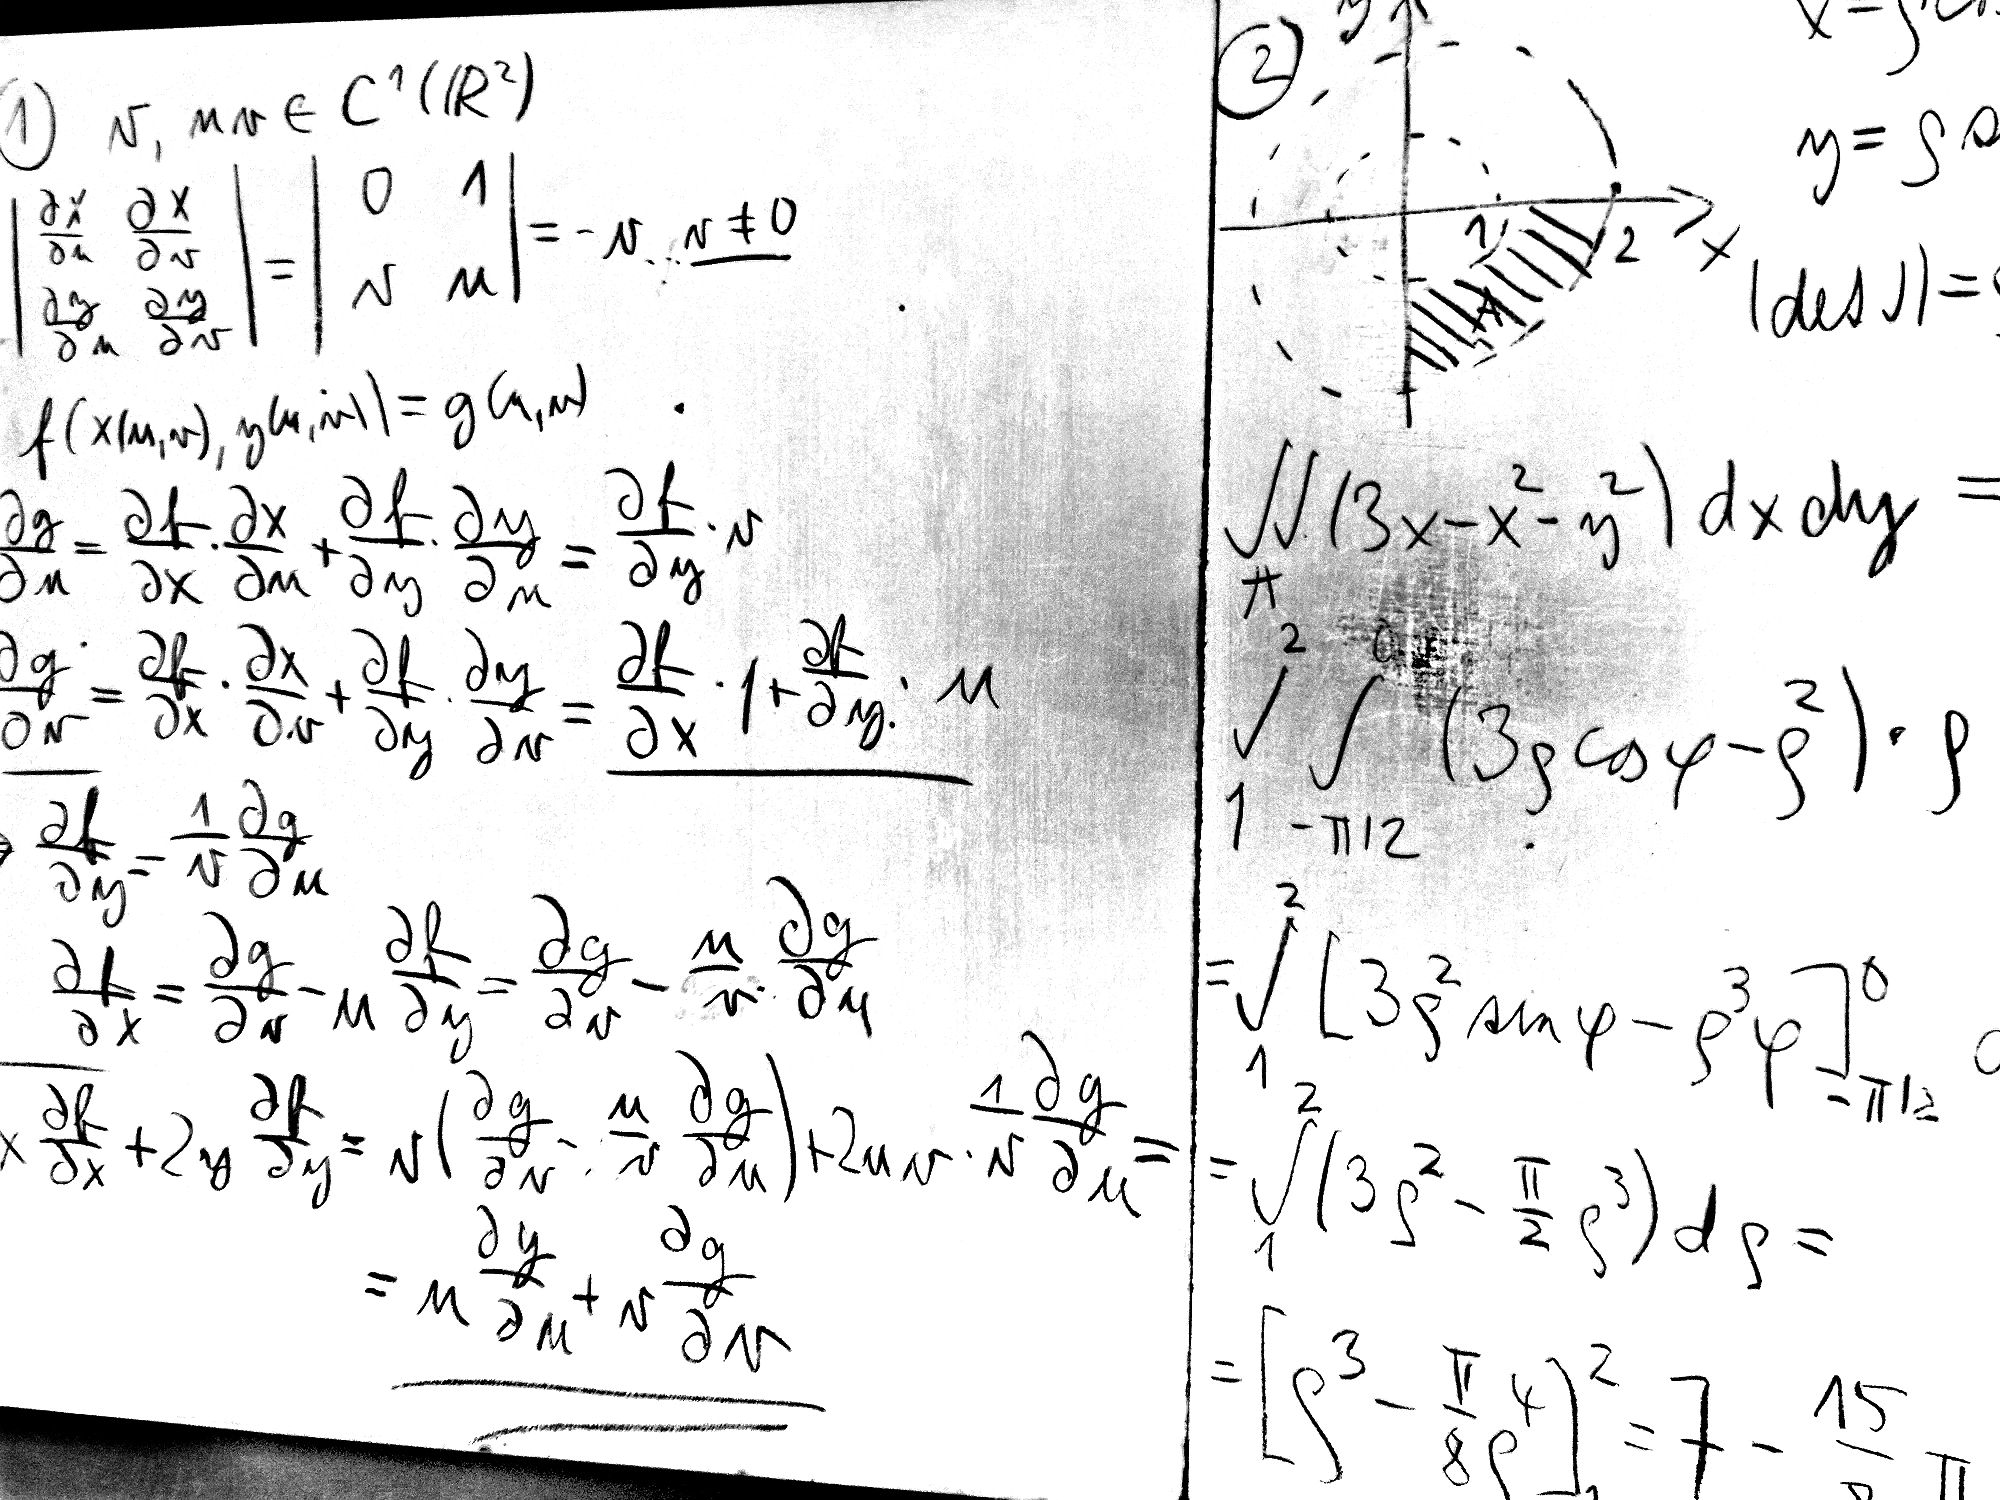 ① v, uv ∈ C¹(ℝ²)
| ∂x/∂u ∂x/∂v ; ∂y/∂u ∂y/∂v | = | 0 1 ; v u | = -v v ≠ 0
f(x(u,v), y(u,v)) = g(u,v)
∂g/∂u = ∂f/∂x · ∂x/∂u + ∂f/∂y · ∂y/∂u = ∂f/∂y · v
∂g/∂v = ∂f/∂x · ∂x/∂v + ∂f/∂y · ∂y/∂v = ∂f/∂x · 1 + ∂f/∂y · u
∂f/∂y = 1/v ∂g/∂u
∂f/∂x = ∂g/∂v - u ∂f/∂y = ∂g/∂v - u/v · ∂g/∂u
x ∂f/∂x + 2y ∂f/∂y = v(∂g/∂v - u/v ∂g/∂u) + 2uv · 1/v ∂g/∂u =
= u ∂g/∂u + v ∂g/∂v
②
y
x = ρ
y = ρ
1 2 x
A
|det J| =
∬_A (3x - x² - y²) dx dy =
∫_1^2 ∫_{-π/2}^0 (3ρ cos φ - ρ²) · ρ
= ∫_1^2 [3ρ² sin φ - ρ³φ]_{-π/2}^0
= ∫_1^2 (3ρ² - π/2 ρ³) dρ =
= [ρ³ - π/8 ρ⁴]_1^2 = 7 - 15/8 π